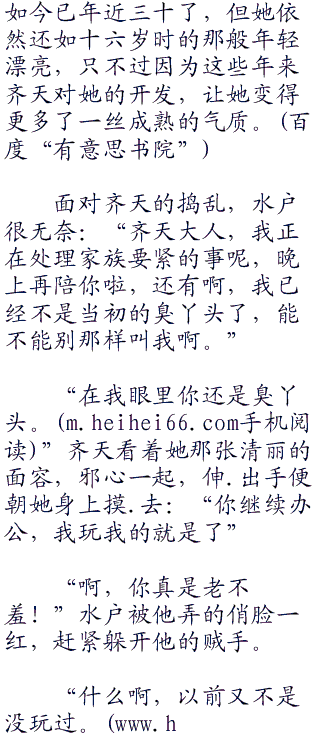 如今已年近三十了，但她依
然还如十六岁时的那般年轻
漂亮，只不过因为这些年来
齐天对她的开发，让她变得
更多了一丝成熟的气质。(百
度“有意思书院”)
面对齐天的捣乱，水户
很无奈：“齐天大人，我正
在处理家族要紧的事呢，晚
上再陪你啦，还有啊，我已
经不是当初的臭丫头了，能
不能别那样叫我啊。”
“在我眼里你还是臭丫
头。(m.heihei66.com手机阅
读)”齐天看着她那张清丽的
面容，邪心一起，伸.出手便
朝她身上摸.去：“你继续办
公，我玩我的就是了”
“啊，你真是老不
羞！”水户被他弄的俏脸一
红，赶紧躲开他的贼手。
“什么啊，以前又不是
没玩过。(www.h